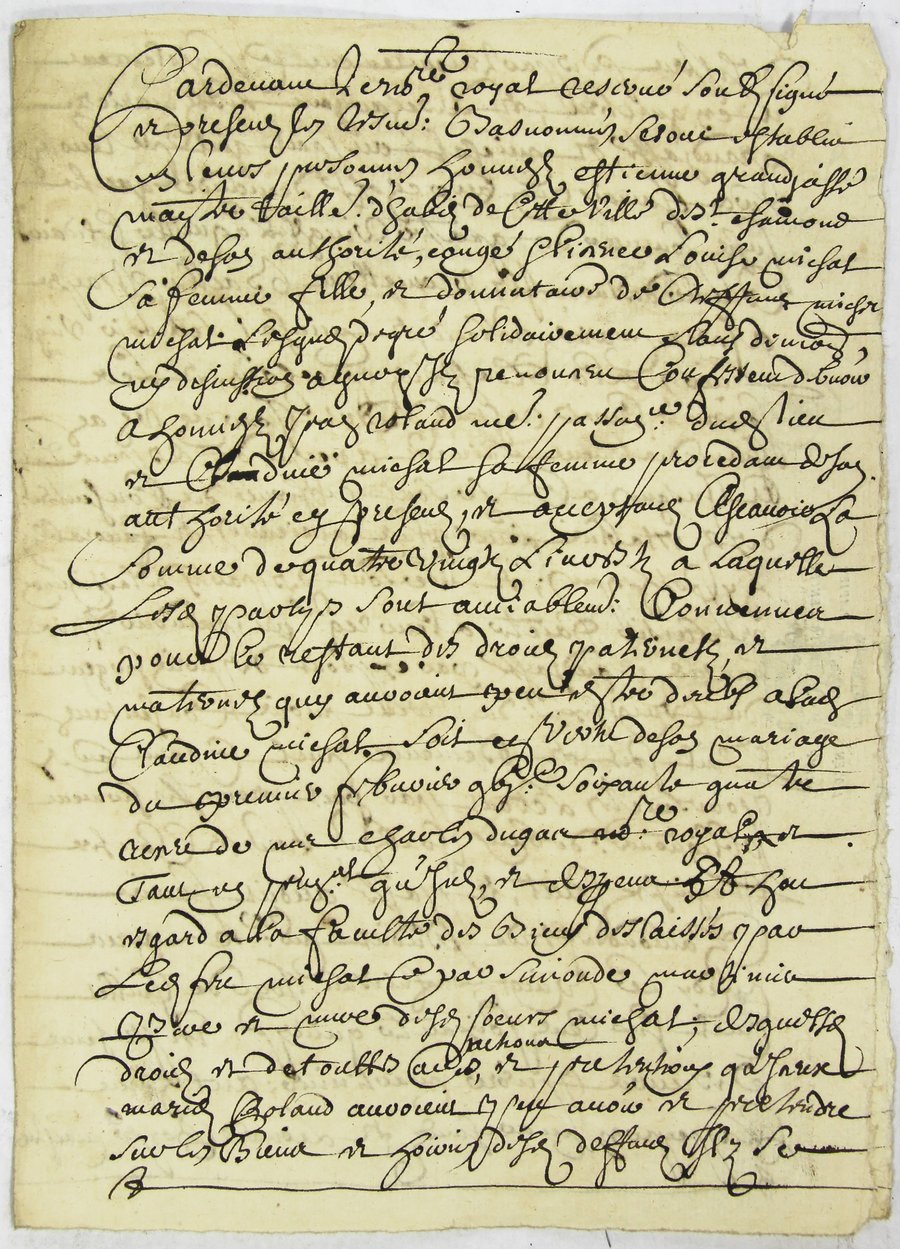 Pardevant le no.re royal reservé soubsigné
et presens les tesm: bas nommés, se sont establis
en leurs personnes honneste estienne grandjasse
maistre taille: d'habis de cette ville de st chamond
et de son authorité, congé & licence Louise michat
sa femme fille, et donnataire de deffunt
michat Lesquels de gré solidairement sans division
ny discution a quoy ils renoncent Confessent debvoir
a honneste Jean roland me: passem.r dudit lieu
et Claudine michat sa femme procedant de son
authorité cy presens, et acceptans Ascavoir La
somme de quatre vingts Livres a Laquelle
Lesd parties sont amiablem: Convenues
pour le restant des droits paternels, et
maternels quy avoient peu estre deubs a lad
Claudine michat soit en vertu de son mariage
du premier febvrier gbj.c soixante quatre
receu de me charles dugas no.re royal et
Tant en principal qu'Interests, et despens Et Heu
esgard a la faculté des biens deslaissés par
Led feu michat & par simonde
pere et mere desd soeurs michat, desquels
droits et de touttes autres noms, et pretentions qu'Iceux
mariés Roland avoient peu avoir et pretendre
sur les biens et hoiries desd deffuns Ils se